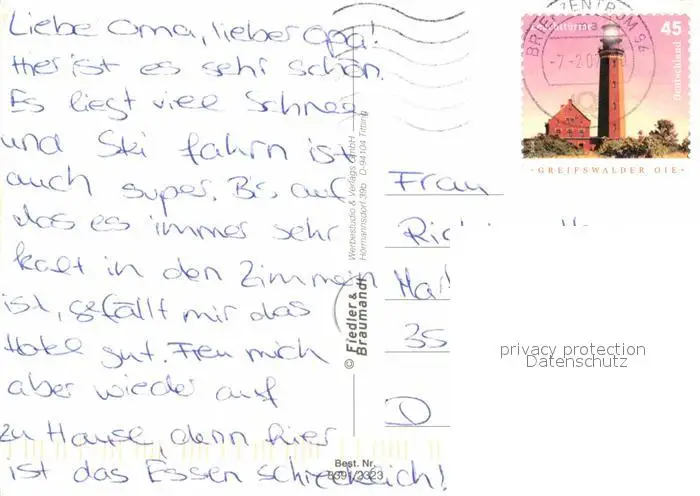 Liebe Oma, lieber Opa!
Hier ist es sehr schön.
Es liegt viel Schnee
und Ski fahrn ist
auch super. Bis auf
das es immer sehr
kalt in den Zimmern
ist, gefällt mir das
Hotel gut. Freu mich
aber wieder auf
zu Hause, denn hier
ist das Essen schrecklich!
BRIEFZENTRUM 96
45
Deutschland
·GREIFSWALDER OIE·
Werbestudio & Verlags GmbH
Hörmannsdorf 39b · D-94104 Tittling
© Fiedler &
Braumandl
Best. Nr.
Frau
35
D
privacy protection
Datenschutz